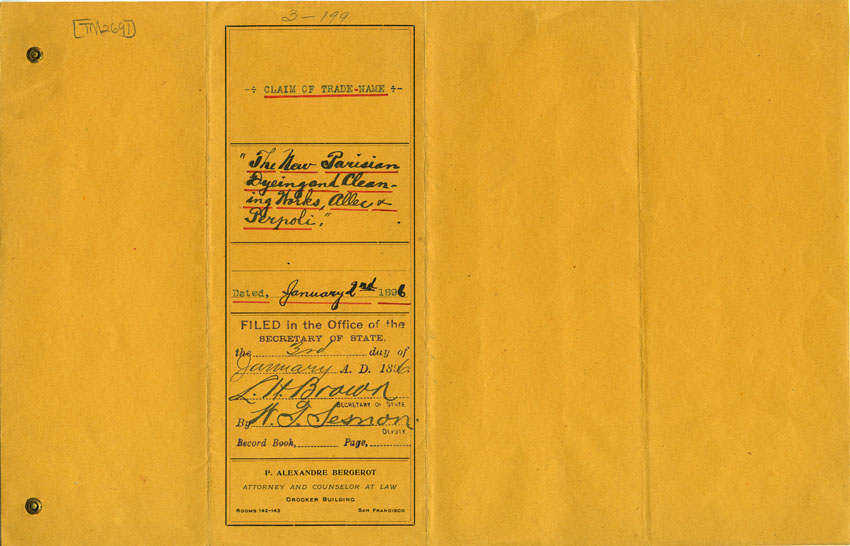 3-199
[TM2691]
-÷ CLAIM OF TRADE-NAME ÷-
"The New Parisian
Dyeing and Clean-
ing Works, Allec &
Perpoli."
Dated, January 2nd 1896
FILED in the Office of the
SECRETARY OF STATE.
the 3rd day of
January A. D. 1896
L. H. Brown
SECRETARY OF STATE
By W. T. Sesnon.
DEPUTY.
Record Book, Page,
P. ALEXANDRE BERGEROT
ATTORNEY AND COUNSELOR AT LAW
CROCKER BUILDING
ROOMS 142-143 SAN FRANCISCO